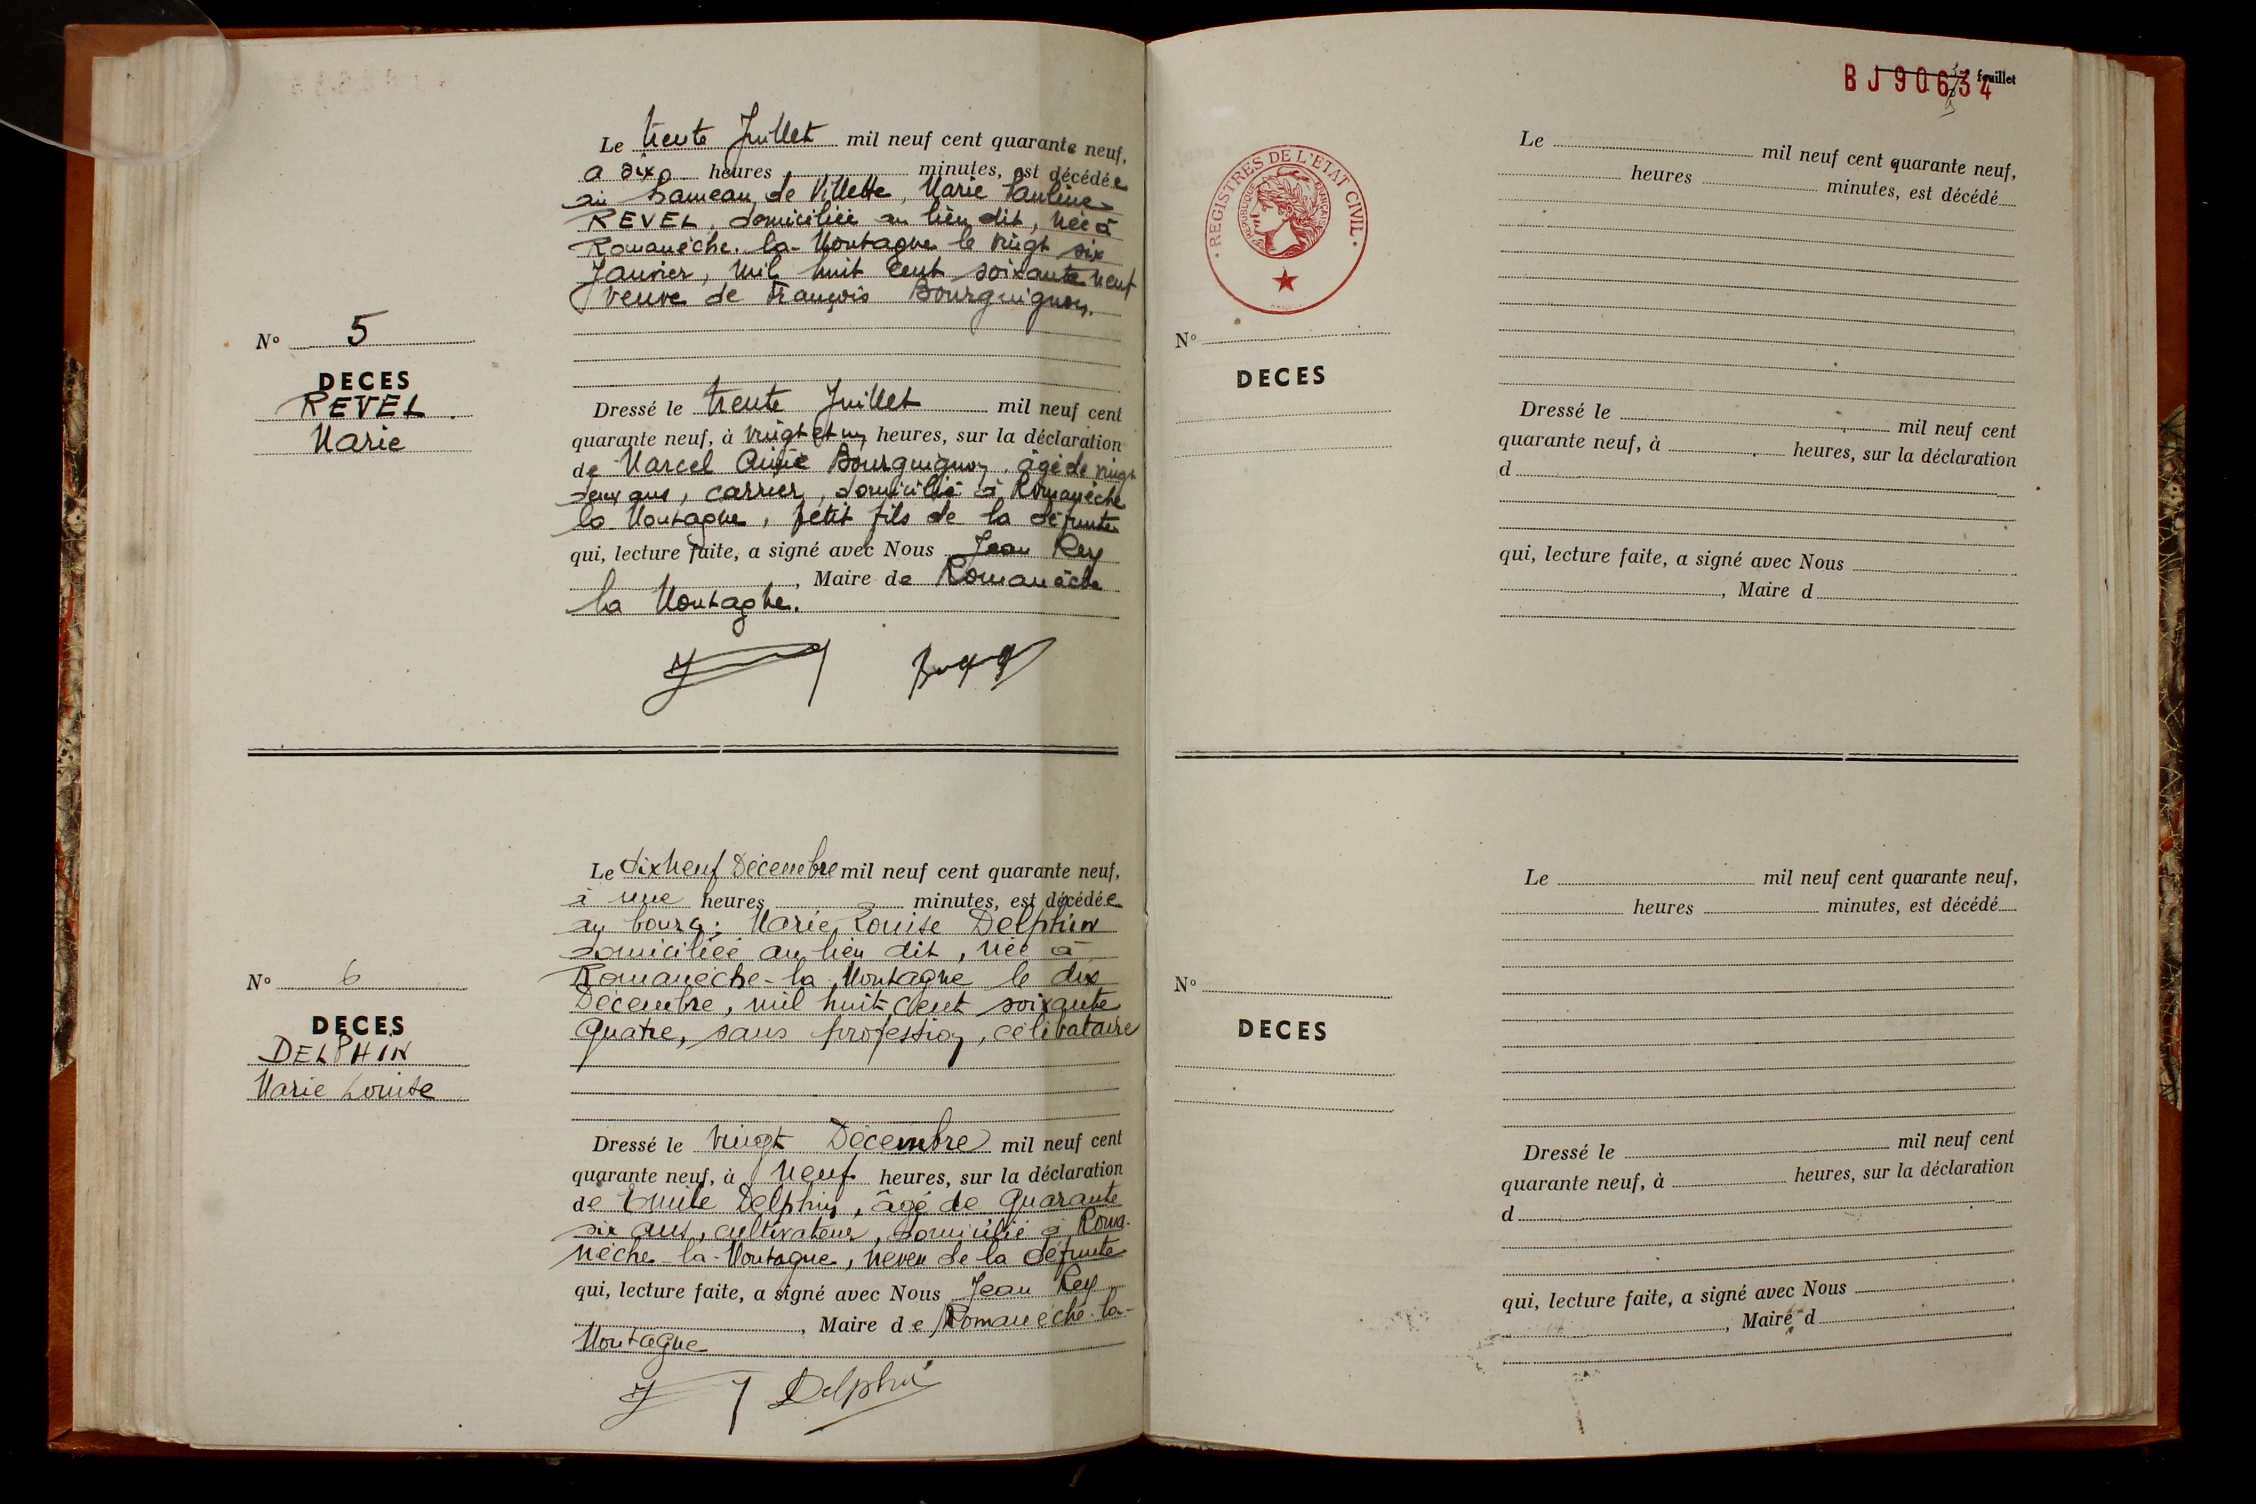 Le trente Juillet mil neuf cent quarante neuf,
à dix heures minutes, est décédée
au hameau de Villette, Marie Pauline
REVEL, domiciliée au lieu dit, née à
Romanèche-la-Montagne le vingt six
Janvier, mil huit cent soixante neuf
veuve de François Bourguignon.
N° 5
DECES
REVEL
Marie
Dressé le trente Juillet mil neuf cent
quarante neuf, à vingt et un heures, sur la déclaration
de Marcel Aimé Bourguignon, âgé de vingt
deux ans, carrier, domicilié à Romanèche
la Montagne, petit fils de la défunte
qui, lecture faite, a signé avec Nous Jean Rey
, Maire de Romanèche
la Montagne.
Le dix neuf Décembre mil neuf cent quarante neuf,
à une heures minutes, est décédée
au bourg: Marie Louise Delphin
domiciliée au lieu dit, née à
Romanèche-la-Montagne le dix
Décembre, mil huit cent soixante
quatre, sans profession, célibataire
N° 6
DECES
DELPHIN
Marie Louise
Dressé le vingt Décembre mil neuf cent
quarante neuf, à neuf heures, sur la déclaration
de Emile Delphin, âgé de quarante
six ans, cultivateur, domicilié à Roma-
nèche-la-Montagne, neveu de la défunte
qui, lecture faite, a signé avec Nous Jean Rey
, Maire de Romanèche-la-
Montagne
Delphin
BJ90634
feuillet
REGISTRES DE L'ETAT CIVIL
REPUBLIQUE FRANÇAISE
Le mil neuf cent quarante neuf,
heures minutes, est décédé
N°
DECES
Dressé le mil neuf cent
quarante neuf, à heures, sur la déclaration
d
qui, lecture faite, a signé avec Nous
, Maire d
Le mil neuf cent quarante neuf,
heures minutes, est décédé
N°
DECES
Dressé le mil neuf cent
quarante neuf, à heures, sur la déclaration
d
qui, lecture faite, a signé avec Nous
, Maire d